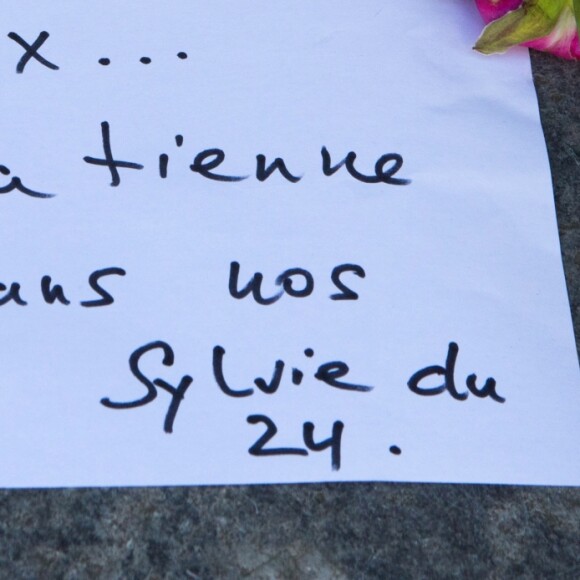 x ...
a tienne
ans nos
Sylvie du
24.